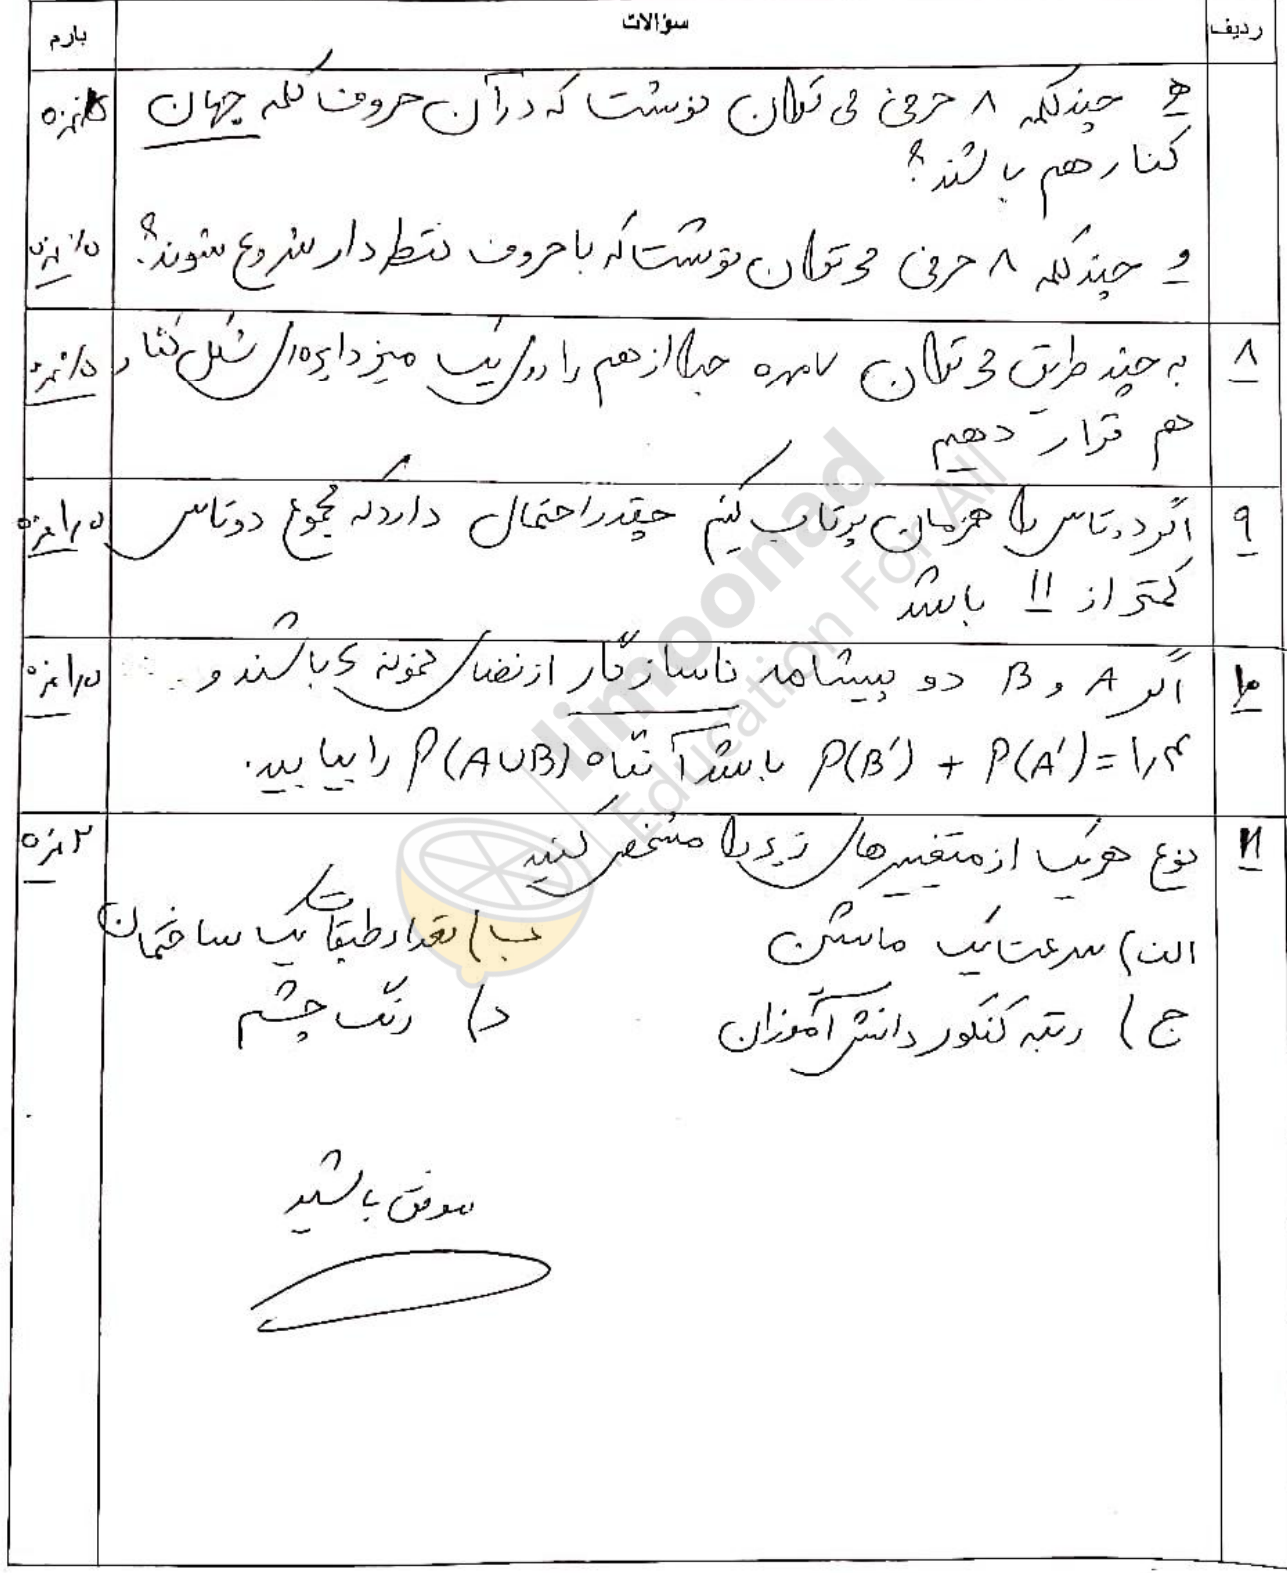 ردیف سؤالات بارم
ه چند کلمه ۸ حرفی می توان نوشت که در آن حروف کلمه جهان
کنار هم باشند؟
و چند کلمه ۸ حرفی می توان نوشت که با حروف نقطه دار شروع شوند؟
۸ به چند طریق می توان مهره جدا از هم را روی یک میز دایره ای شکل کنار
هم قرار دهیم
۹ اگر دو تاس را همزمان پرتاب کنیم چقدر احتمال دارد که مجموع دو تاس
کمتر از ۱۱ باشد
۱۰ اگر A و B دو پیشامد ناسازگار از فضای نمونه S باشند و
P(B′) + P(A′) = ۱٫۴ باشد آنگاه P(A∪B) را بیابید.
۱۱ نوع هر یک از متغییرهای زیر را مشخص کنید ۲ نمره
الف) سرعت یک ماشین ب) تعداد طبقات یک ساختمان
ج) رتبه کنکور دانش آموزان د) رنگ چشم
موفق باشید
limoonad
Education For All